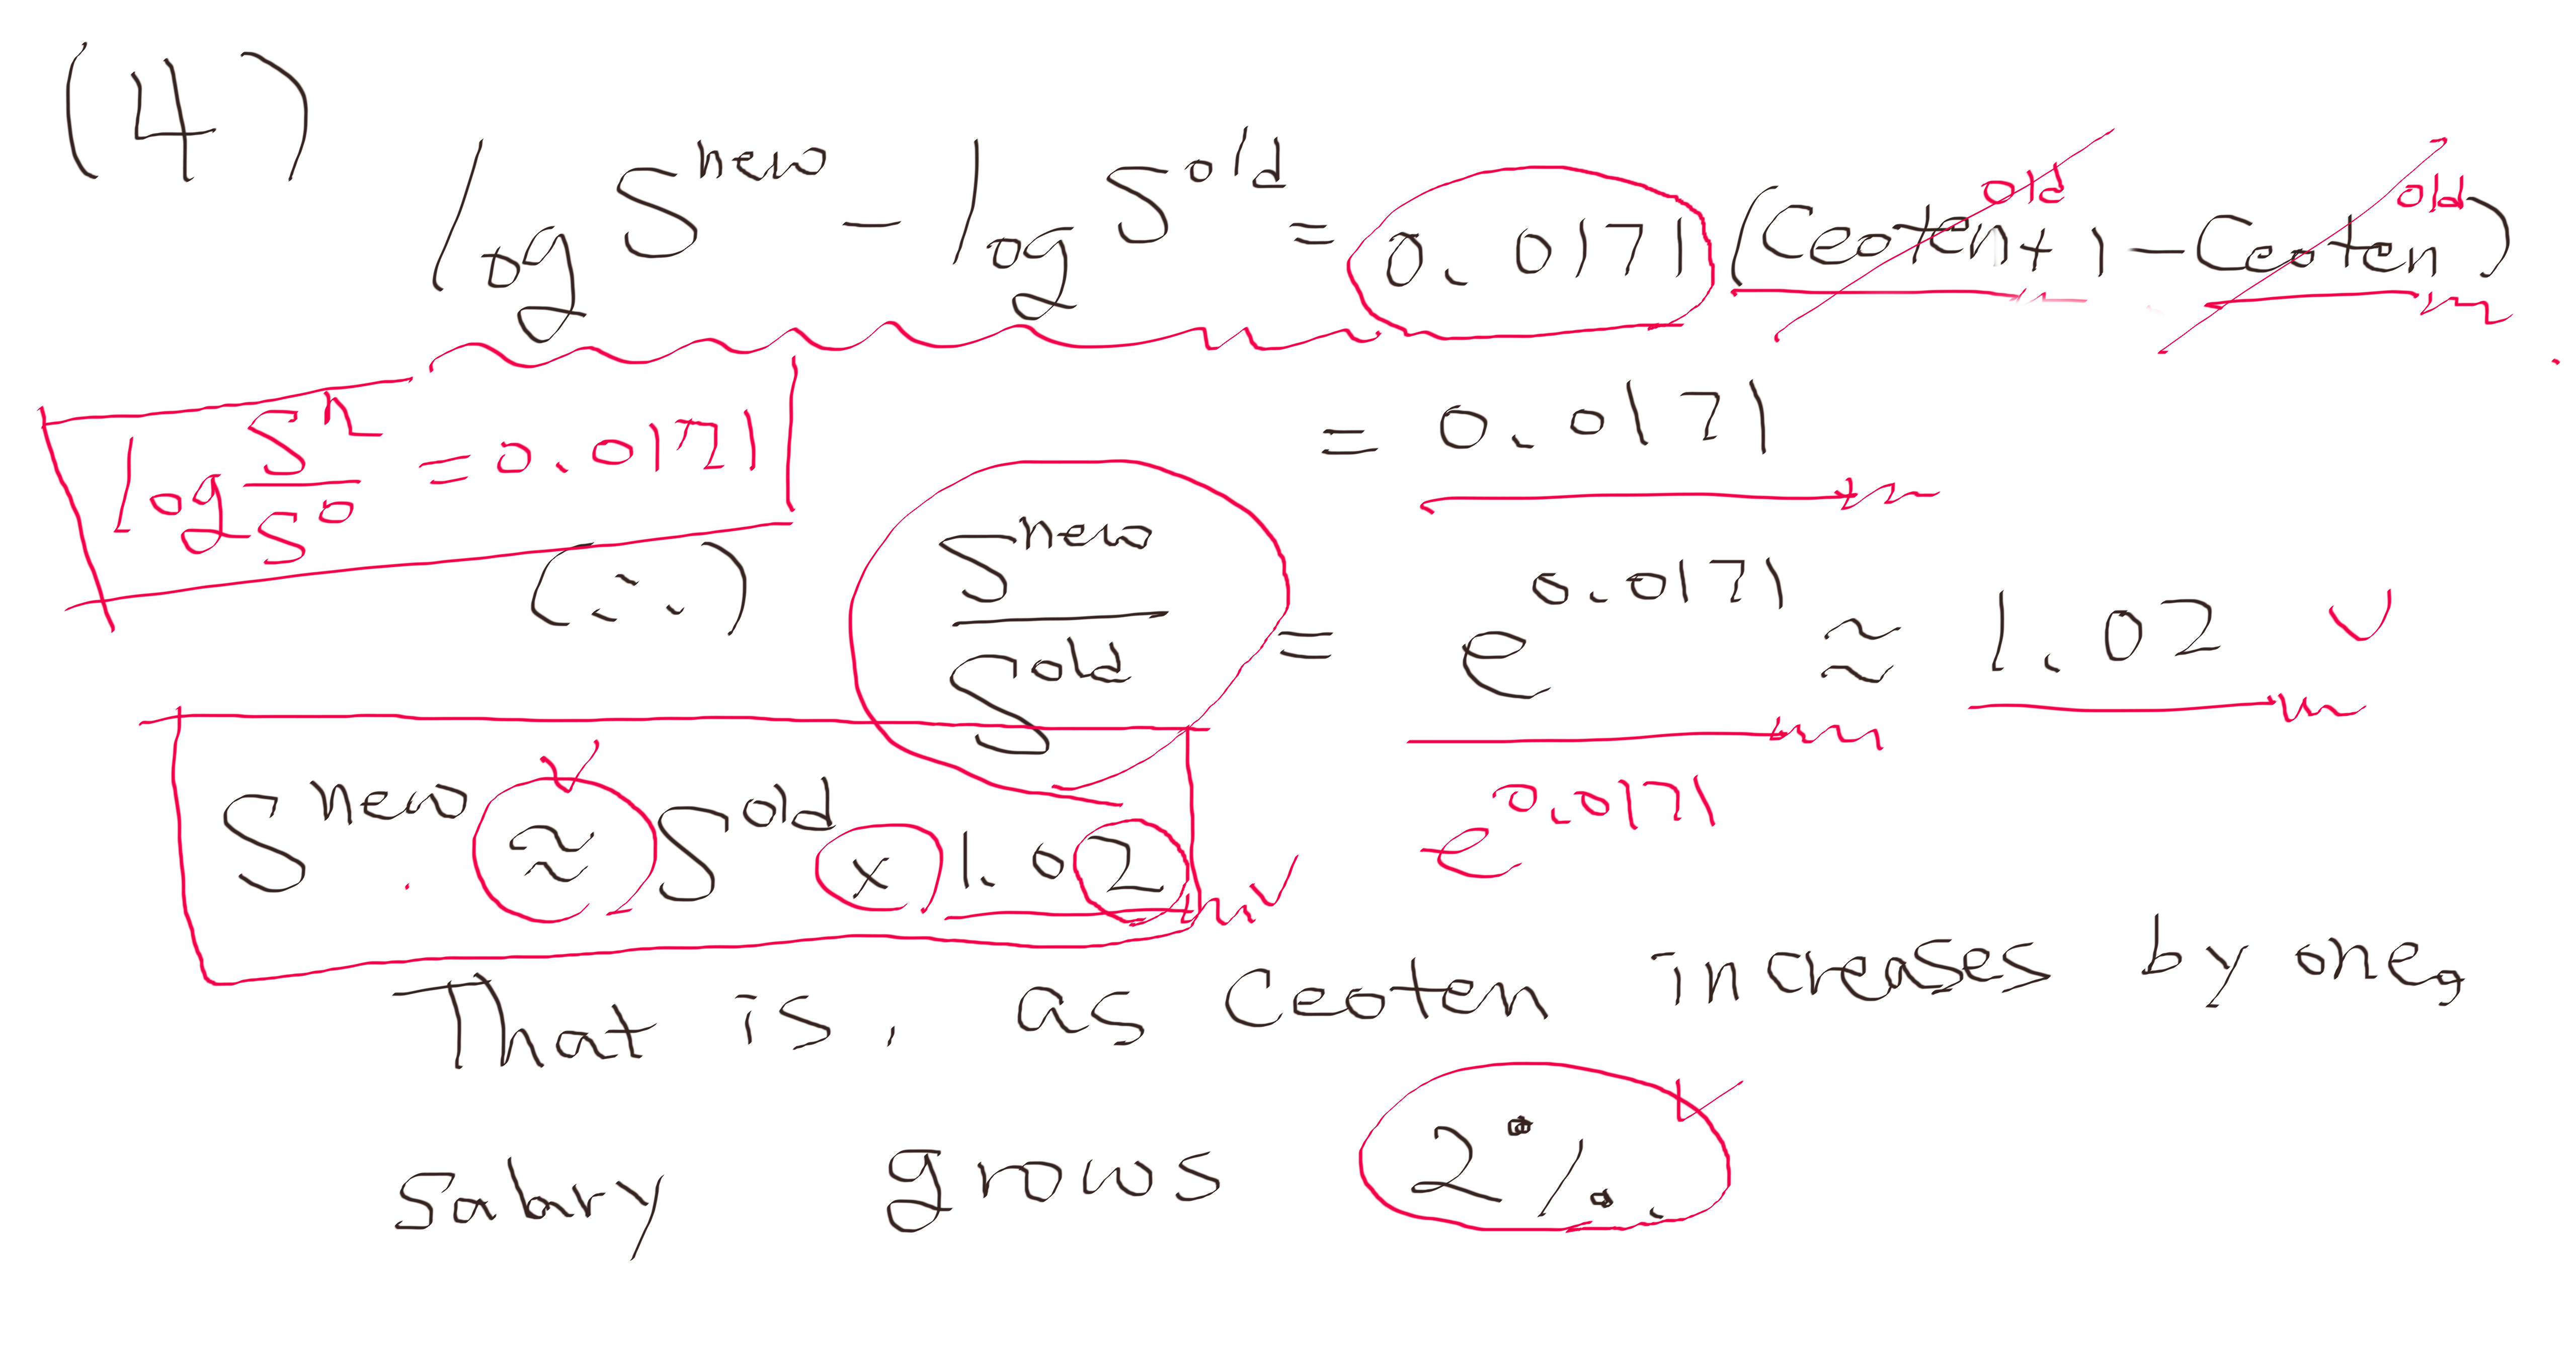 (4)
log S^new - log S^old = 0.0171 (Ceoten^old + 1 - Ceoten^old)
log S^n/S^o = 0.0171
= 0.0171
(∴) S^new/S^old = e^0.0171 ≈ 1.02
e^0.0171
S^new ≈ S^old × 1.02
That is, as Ceoten increases by one,
salary grows 2%.